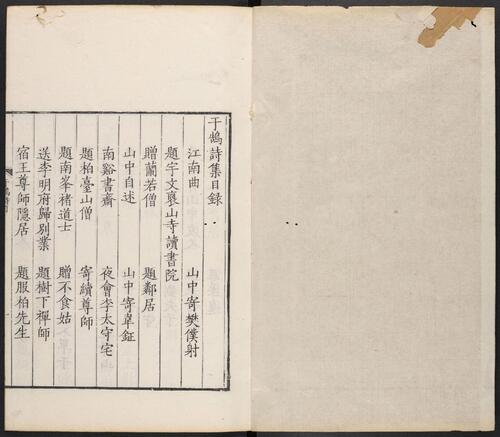 于鵠詩集目錄
江南曲 山中寄樊僕射
題宇文褒山寺讀書院
贈蘭若僧 題鄰居
山中自述 山中寄韋鉦
南谿書齋 夜會李太守宅
題柏臺山僧 寄續尊師
題南峯褚道士 贈不食姑
送李明府歸別業 題樹下禪師
宿王尊師隱居 題服柏先生